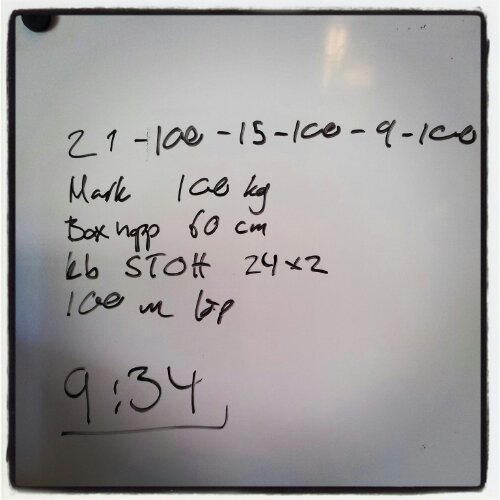 21-100-15-100-9-100
Mark 100 kg
Box hopp 60 cm
kb STOH 24x2
100 m löp
9:34